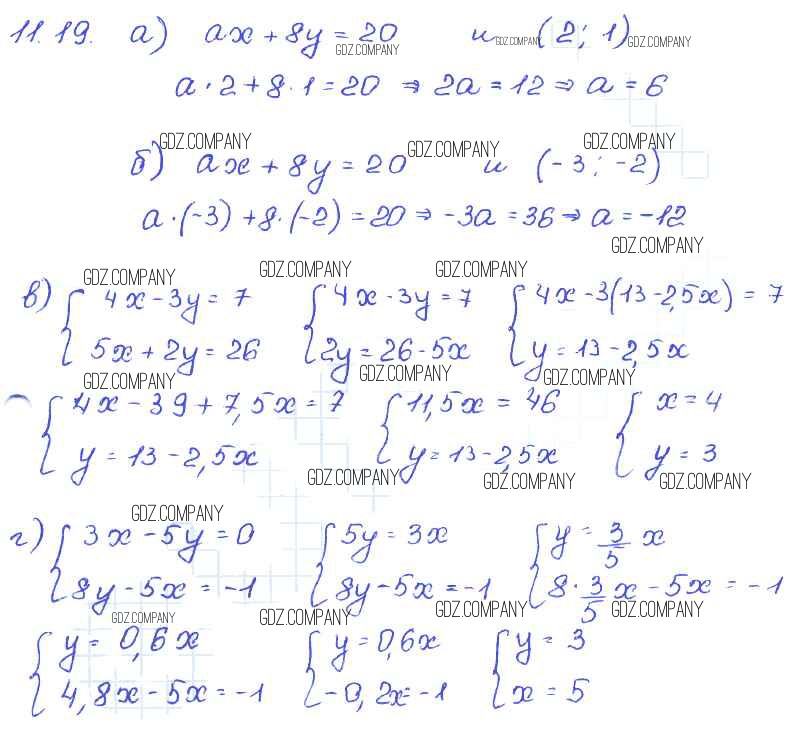 11.19. а) ax + 8y = 20 и (2; 1)
GDZ.COMPANY GDZ.COMPANY GDZ.COMPANY
a · 2 + 8 · 1 = 20 ⇒ 2a = 12 ⇒ a = 6
GDZ.COMPANY GDZ.COMPANY GDZ.COMPANY
б) ax + 8y = 20 и (-3; -2)
a · (-3) + 8 · (-2) = 20 ⇒ -3a = 36 ⇒ a = -12
GDZ.COMPANY
GDZ.COMPANY GDZ.COMPANY GDZ.COMPANY
в) { 4x - 3y = 7 { 4x - 3y = 7 { 4x - 3(13 - 2,5x) = 7
5x + 2y = 26 2y = 26 - 5x y = 13 - 2,5x
GDZ.COMPANY GDZ.COMPANY GDZ.COMPANY
{ 4x - 39 + 7,5x = 7 { 11,5x = 46 { x = 4
y = 13 - 2,5x y = 13 - 2,5x y = 3
GDZ.COMPANY GDZ.COMPANY GDZ.COMPANY
GDZ.COMPANY
г) { 3x - 5y = 0 { 5y = 3x { y = 3/5 x
8y - 5x = -1 8y - 5x = -1 8 · 3/5 x - 5x = -1
GDZ.COMPANY GDZ.COMPANY GDZ.COMPANY GDZ.COMPANY
{ y = 0,6x { y = 0,6x { y = 3
4,8x - 5x = -1 -0,2x = -1 x = 5